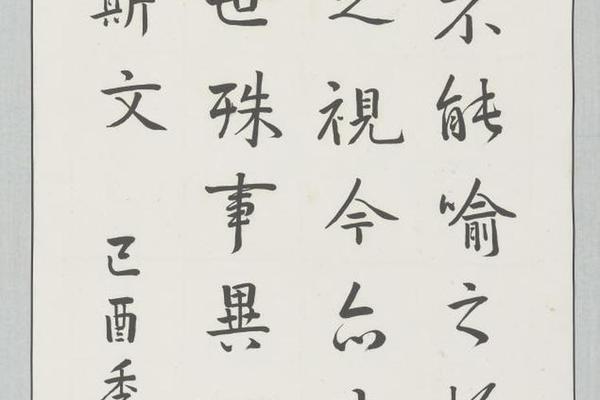 不能喻之於
之視今亦
世殊事異
斯文
己酉季